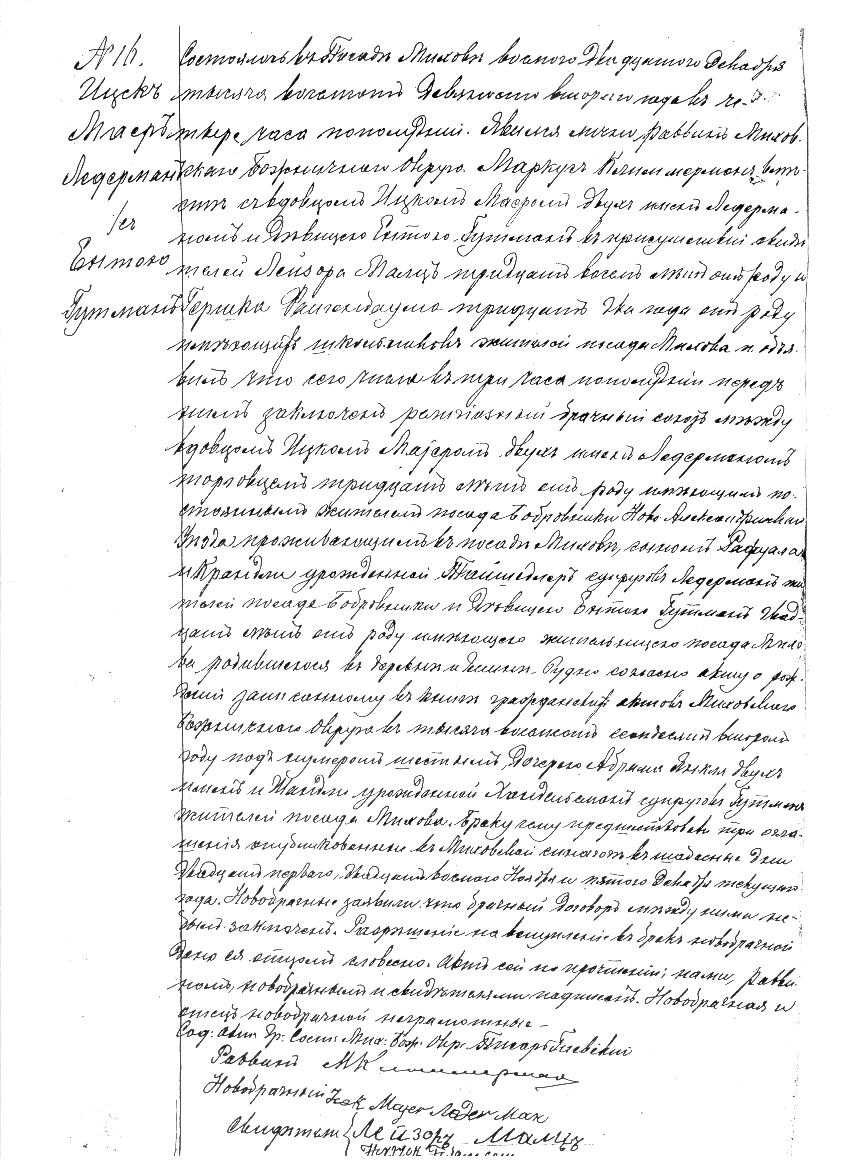 № 16.
Ицекъ
Маеръ
Ледерманъ
съ
Ентою
Гутманъ
Состоялось въ Посадѣ Миховѣ восьмого Декабря
тысяча восемсотъ девяносто второго года въ че-
тыре часа пополудни. Явился лично Раввинъ Михов-
скаго Божничнаго Округа Маркусъ Климмерманъ вмѣ-
стѣ съ вдовцомъ Ицкомъ Маеромъ двухъ именъ Ледерма-
номъ и Дѣвицею Ентою Гутманъ въ присутствіи свидѣ
телей Лейзора Малцъ тридцать восемь лѣтъ отъ роду и
Гершка тридцать два года отъ роду
имѣющихъ школьниковъ жителей посада Михова и объя-
вилъ что сего числа въ три часа пополудни передъ
нимъ заключенъ религіозный брачный союзъ между
вдовцомъ Ицкомъ Маеромъ двухъ именъ Ледерманомъ
торговцемъ тридцать лѣтъ отъ роду имѣющимъ по-
стояннымъ жителемъ посада Бобровники Ново Александрійскаго
Уѣзда проживающимъ въ посадѣ Миховѣ, сыномъ Рафуала
и Крандли урожденной супруговъ Ледерманъ жи
телей посада Бобровники и Дѣвицею Ентою Гутманъ двад-
цать лѣтъ отъ роду имѣющею жительницею посада Михо
ва родившеюся въ деревни Рудно согласно акту о рож-
деніи записанному въ книгѣ гражданскихъ актовъ Миховскаго
Божничнаго Округа въ тысяча восемсотъ семдесятъ второмъ
году подъ нумеромъ шестымъ, Дочерью Абрама Янкля двухъ
именъ и урожденной супруговъ Гутманъ
жителей посада Михова. Браку сему предшествовали три огла-
шенія опубликованные въ Миховской синагогѣ въ шабесные дни
двадцать перваго, двадцать восьмого Ноября и пятого Декабря текущаго
года. Новобрачные заявили что брачный договоръ между ними не
былъ заключенъ. Разрѣшеніе на вступленіе въ бракъ новобрачной
дано ея отцомъ словесно. Актъ сей по прочтеніи, нами, Равви-
номъ, новобрачнымъ и свидѣтелями подписанъ. Новобрачная и
отецъ новобрачной неграмотные –
Сод: актъ Гр: Сост: Мих: Бож: Окр: Писарь
Раввинъ М Климмерман
Новобрачный Ицек Маер Ледерман
Свидѣтели { Лейзоръ Малцъ